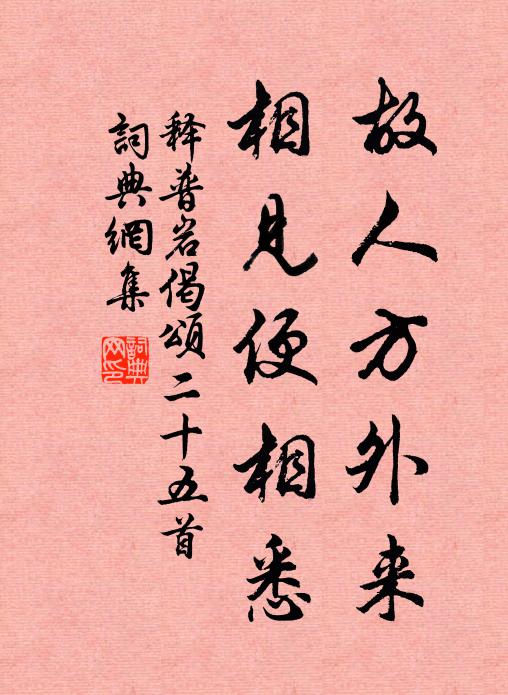 故人方外来
相見便相悉
释普岩偈頌二十五首
詞典網集
詞典网印